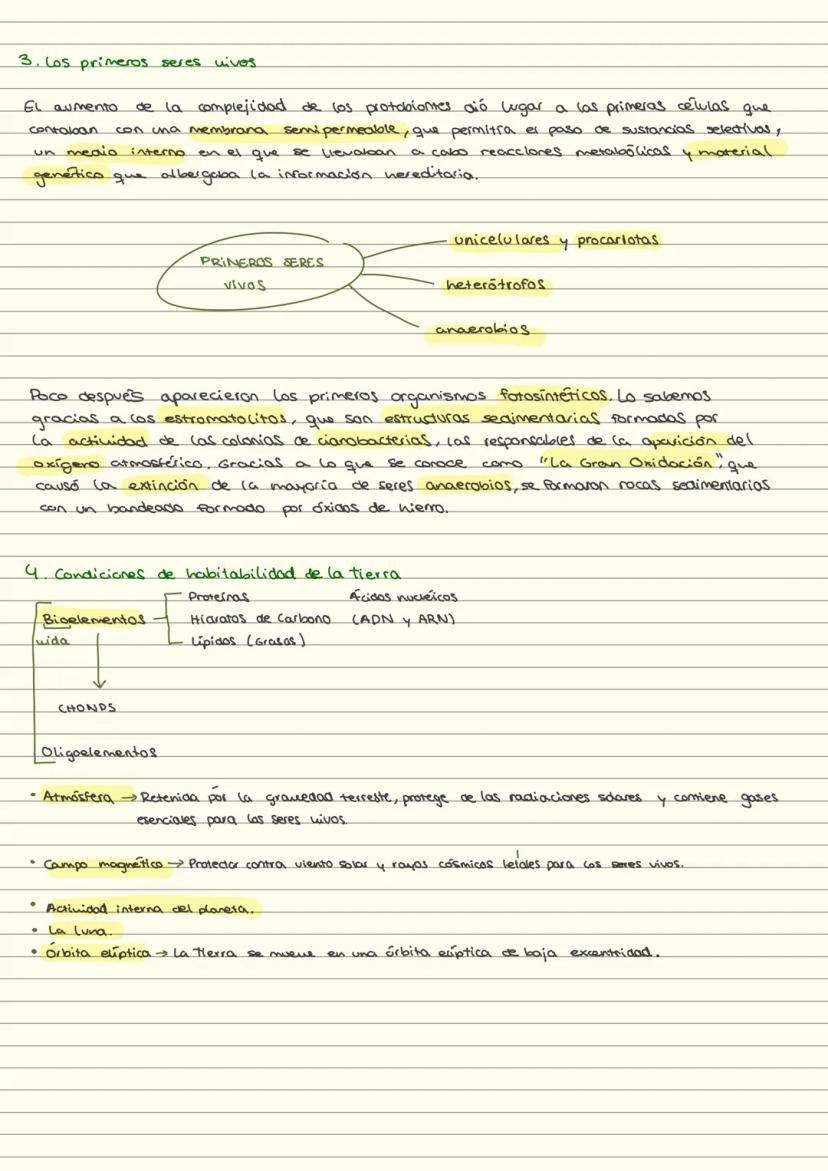 3. Los primeros seres vivos
El aumento de la complejidad de los protobiontes dió lugar a las primeras células que
contaban con una membrana semipermeable, que permitía el paso de sustancias selectivas,
un medio interno en el que se llevaban a cabo reacciones metabólicas y material
genético que albergaba la información hereditaria.
unicelulares y procariotas
PRIMEROS SERES
VIVOS
heterótrofos
anaerobios
Poco después aparecieron los primeros organismos fotosintéticos. Lo sabemos
gracias a los estromatolitos, que son estructuras sedimentarias formadas por
la actividad de las colonias de cianobacterias, las responsables de la aparición del
oxígeno atmosférico. Gracias a lo que se conoce como "La Gran Oxidación", que
causó la extinción de la mayoría de seres anaerobios, se formaron rocas sedimentarias
con un bandeado formado por óxidos de hierro.
4. Condiciones de habitabilidad de la tierra
Proteínas Ácidos nucleicos
Bioelementos Hidratos de Carbono (ADN y ARN)
vida Lípidos (Grasas)
CHONPS
Oligoelementos
• Atmósfera → Retenida por la gravedad terrestre, protege de las radiaciones solares y contiene gases
esenciales para los seres vivos.
• Campo magnético → Protector contra viento solar y rayos cósmicos letales para los seres vivos.
• Actividad interna del planeta.
• La luna.
• Órbita elíptica → La Tierra se mueve en una órbita elíptica de baja excentridad.